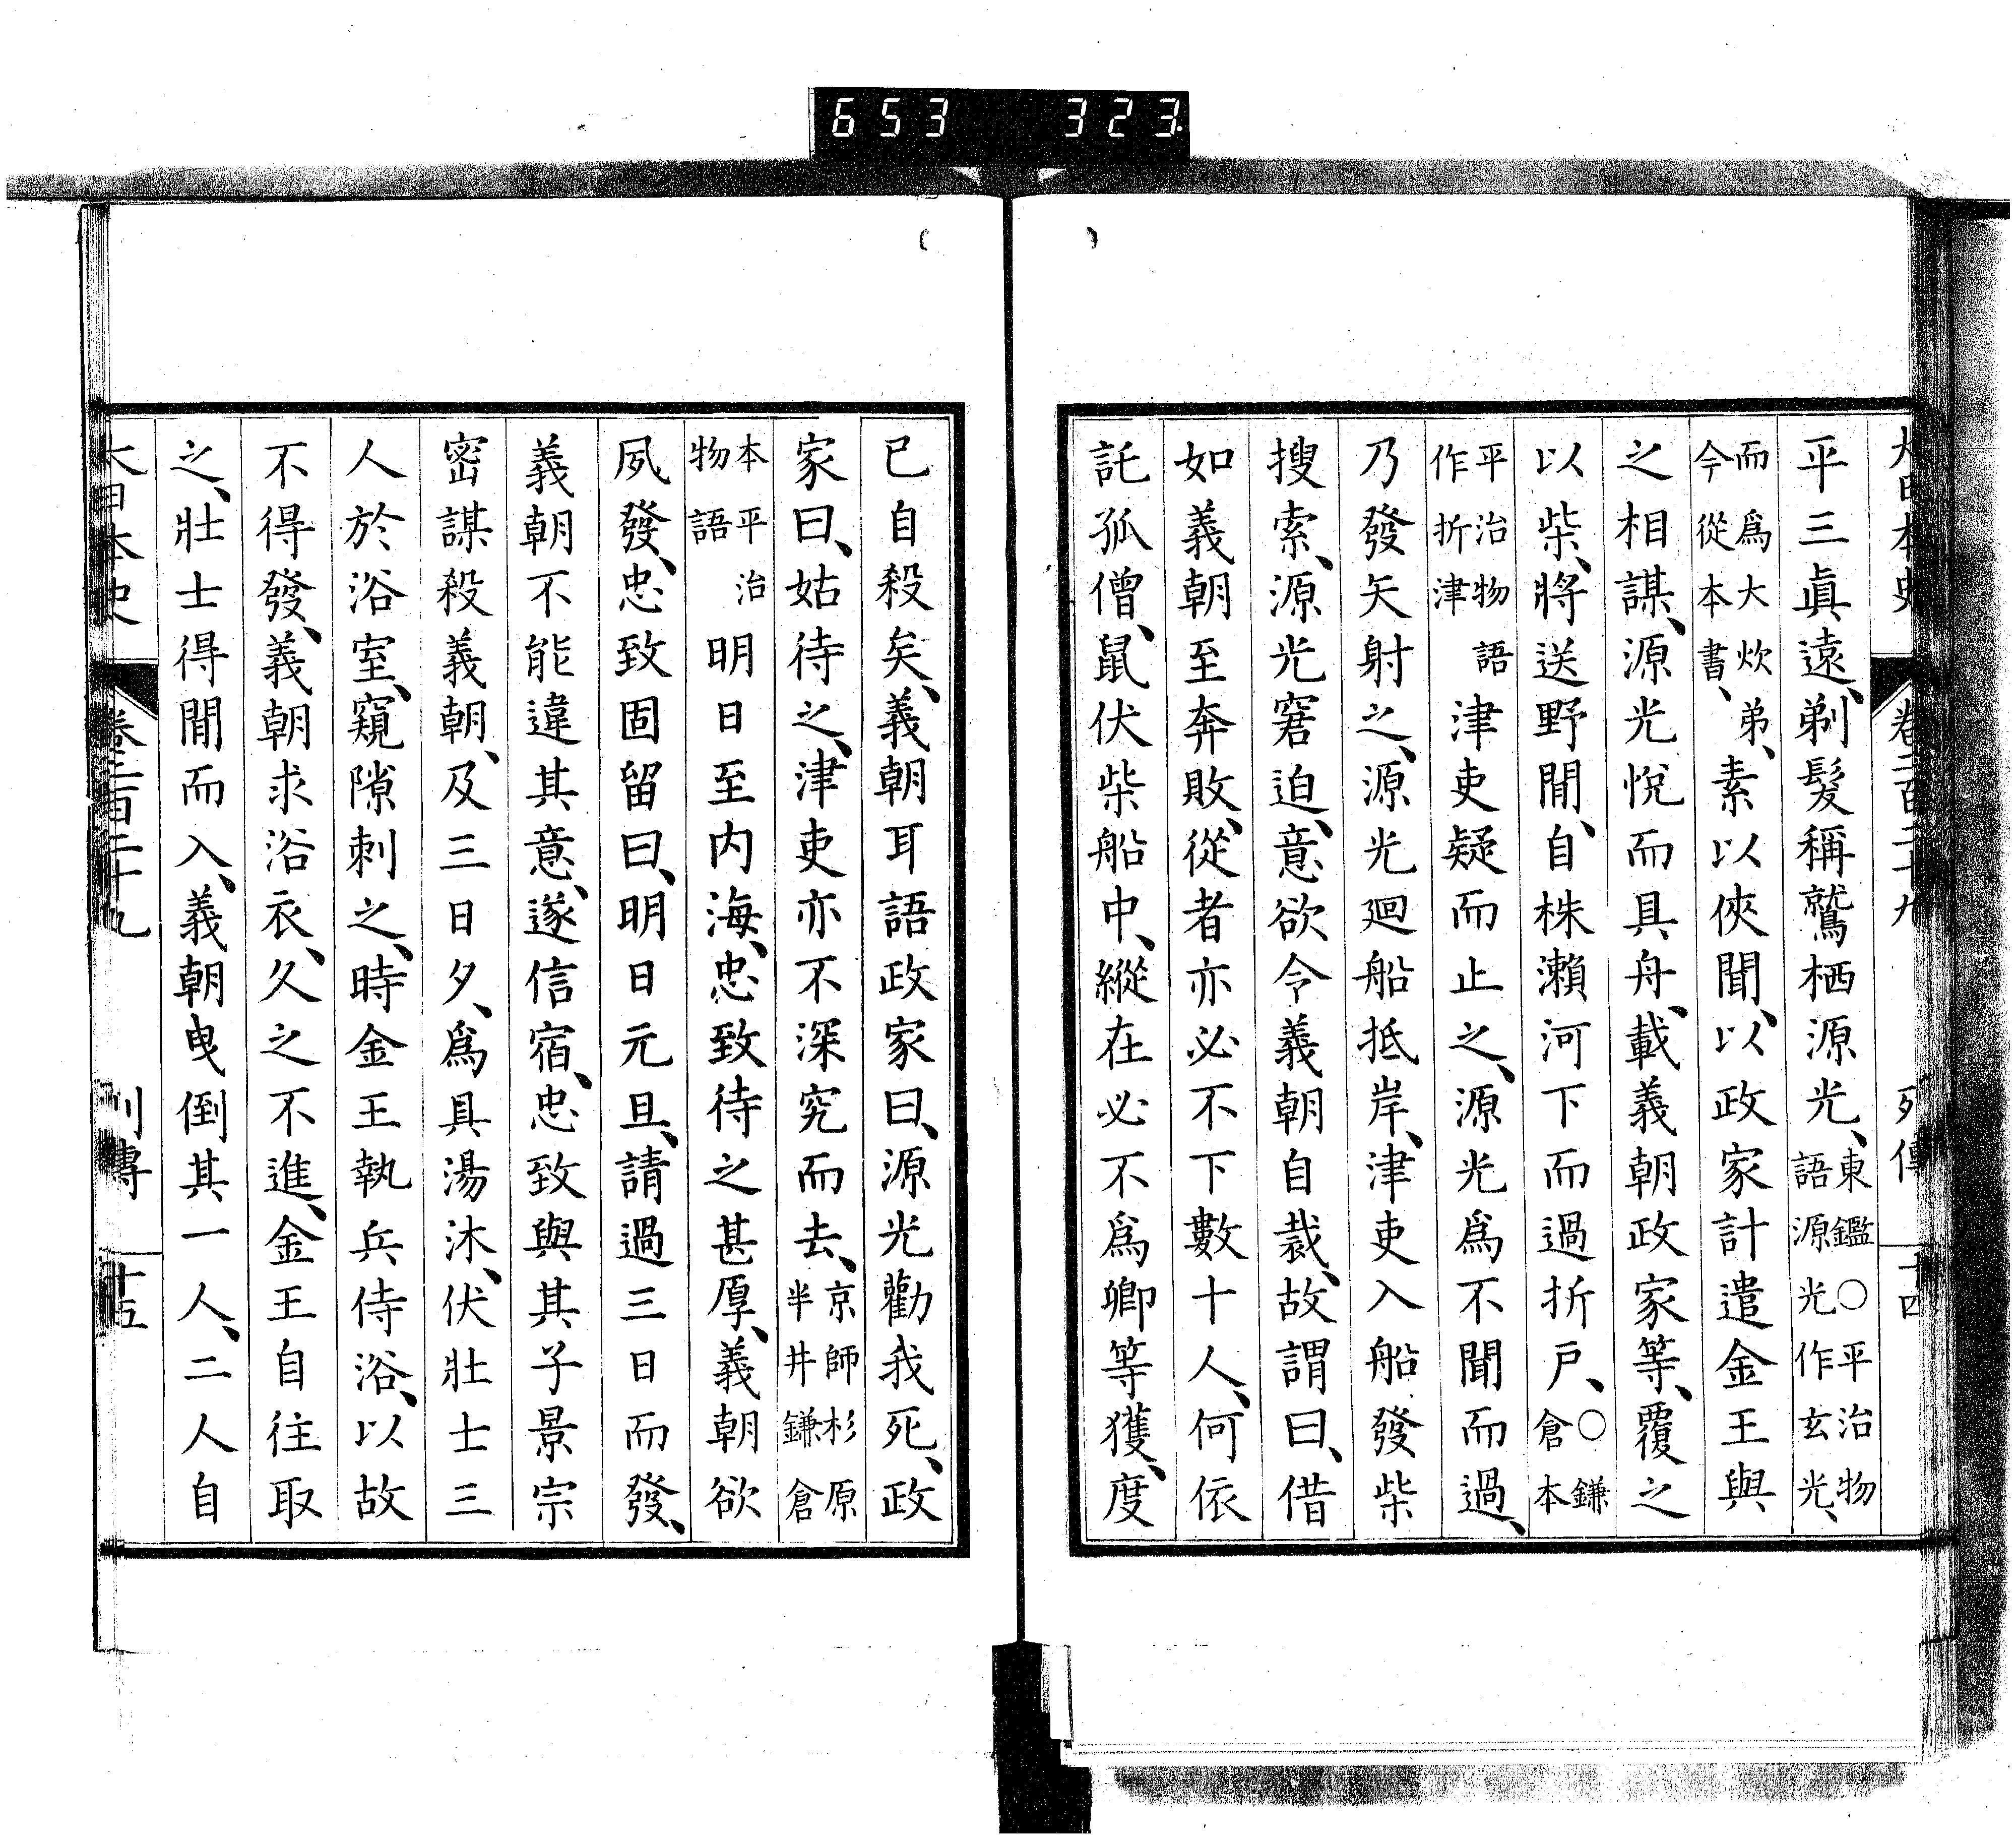 653 323
大日本史 卷二百二十九 列傳 十四
平三眞遠、剃髮稱鷲栖源光、東鑑○平治物語源光作玄光、
而爲大炊弟、今從本書、素以俠聞、以政家計遣金王與
之相謀、源光悅而具舟、載義朝政家等、覆之
以柴、將送野閒、自株瀨河下而過折戸、○鎌倉本
平治物語作折津津吏疑而止之、源光爲不聞而過、
乃發矢射之、源光廻船抵岸、津吏入船發柴
搜索、源光窘迫、意欲令義朝自裁、故謂曰、借
如義朝至奔敗、從者亦必不下數十人、何依
託孤僧、鼠伏柴船中、縱在必不爲卿等獲、度
已自殺矣、義朝耳語政家曰、源光勸我死、政
家曰、姑待之、津吏亦不深究而去、京師杉原半井鎌倉
本平治物語明日至内海、忠致待之甚厚、義朝欲
夙發、忠致固留曰、明日元旦、請過三日而發、
義朝不能違其意、遂信宿、忠致與其子景宗
密謀殺義朝、及三日夕、爲具湯沐、伏壯士三
人於浴室、窺隙刺之、時金王執兵侍浴、以故
不得發、義朝求浴衣、久之不進、金王自往取
之、壯士得閒而入、義朝曳倒其一人、二人自
大日本史 卷二百二十九 列傳 十五